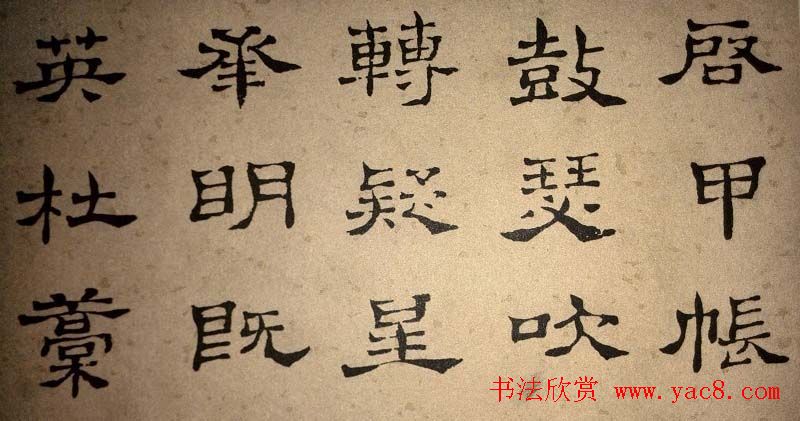 啓甲帳
鼓瑟吹
轉疑星
承明既
英杜稾
书法欣赏 www.yac8.com